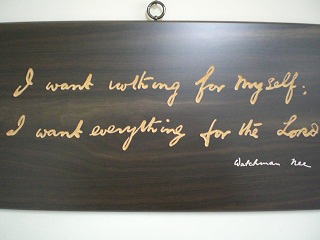 I want nothing for myself;
I want everything for the Lord
Watchman Nee